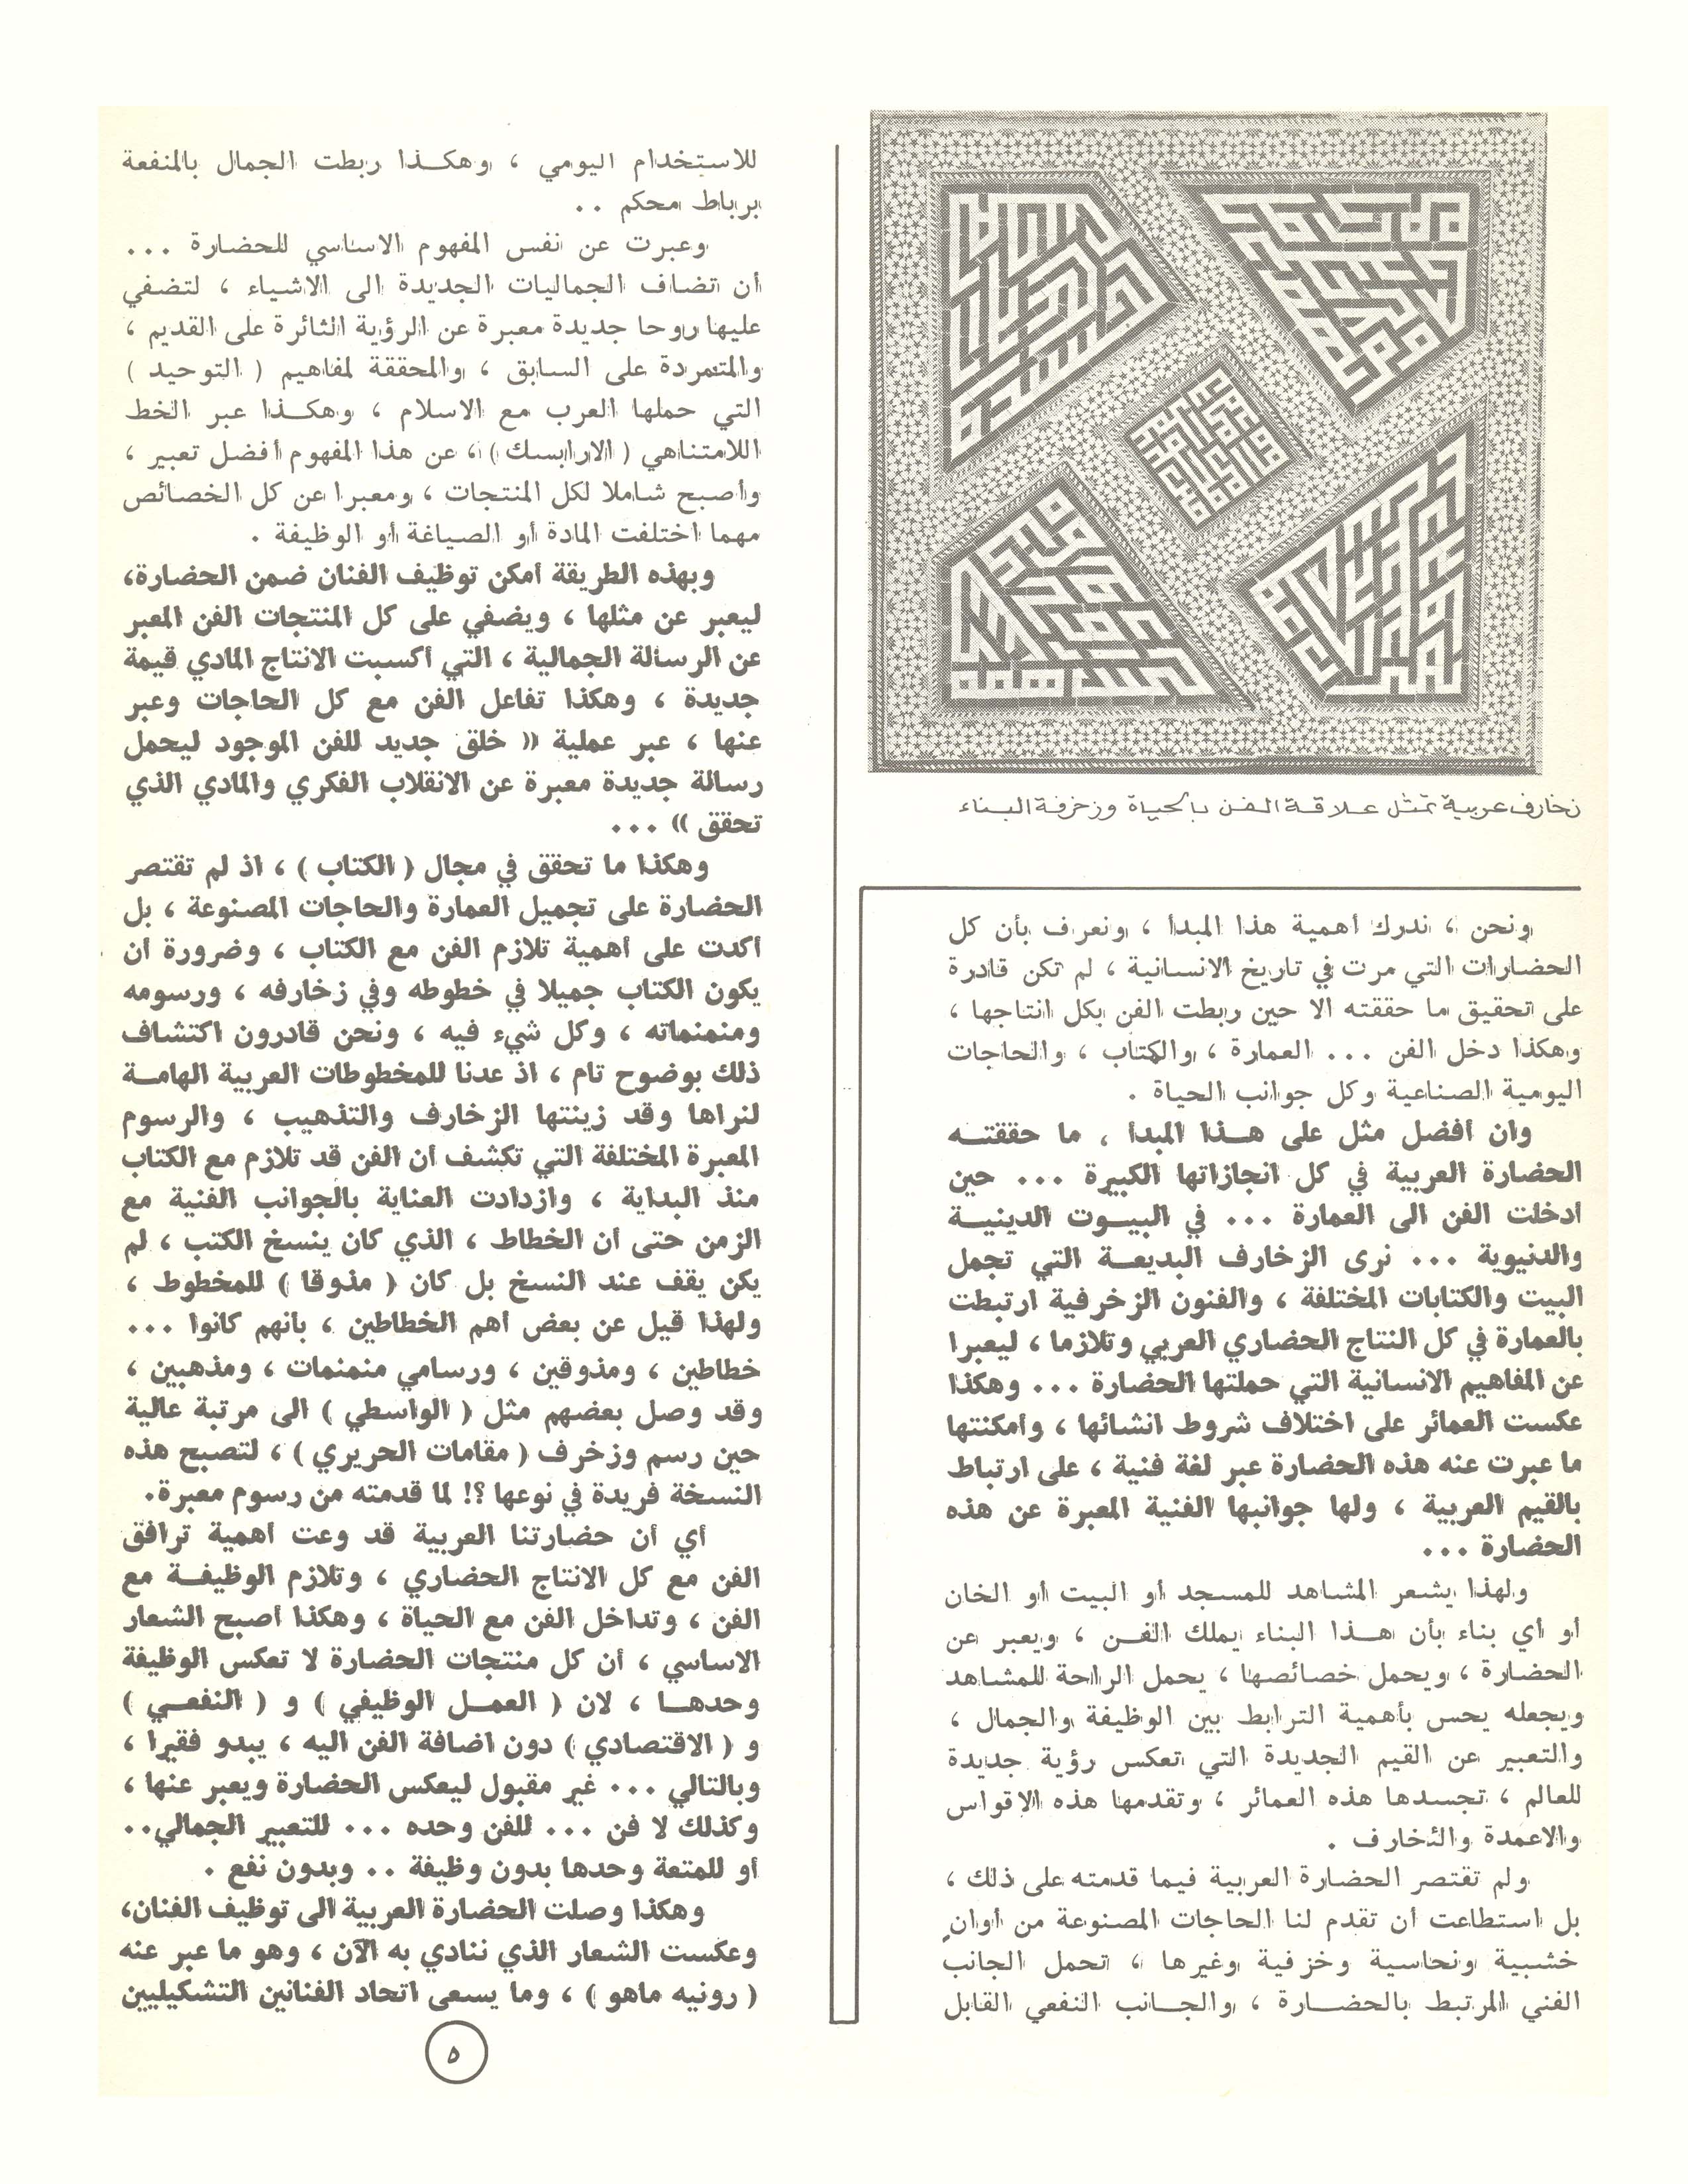 زخارف عربية تمثل علاقة الفن بالحياة وزخرفة البناء
ونحن ، ندرك أهمية هذا المبدأ ، ونعرف بأن كل
الحضارات التي مرت في تاريخ الانسانية ، لم تكن قادرة
على تحقيق ما حققته الا حين ربطت الفن بكل انتاجها ،
وهكذا دخل الفن ... العمارة ، والكتاب ، والحاجات
اليومية الصناعية وكل جوانب الحياة .
وان أفضل مثل على هــذا المبدأ ، ما حققتــه
الحضارة العربية في كل انجازاتها الكبيرة ... حين
أدخلت الفن الى العمارة ... في البيــوت الدينيــة
والدنيوية ... نرى الزخارف البديعــة التي تجمل
البيت والكتابات المختلفة ، والفنون الزخرفية ارتبطت
بالعمارة في كل النتاج الحضاري العربي وتلازما ، ليعبرا
عن المفاهيم الانسانية التي حملتها الحضارة ... وهكذا
عكست العمائر على اختلاف شروط انشائها ، وأمكنتها
ما عبرت عنه هذه الحضارة عبر لغة فنية ، على ارتباط
بالقيم العربية ، ولها جوانبها الفنية المعبرة عن هذه
الحضارة ...
ولهذا يشعر المشاهد للمسجد أو البيت أو الخان
أو أي بناء بأن هــذا البناء يملك الفــن ، ويعبر عن
الحضارة ، ويحمل خصائصها ، يحمل الراحة للمشاهد
ويجعله يحس بأهمية الترابط بين الوظيفة والجمال ،
والتعبير عن القيم الجديدة التي تعكس رؤية جديدة
للعالم ، تجسدها هذه العمائر ، وتقدمها هذه الاقواس
والاعمدة والزخارف .
ولم تقتصر الحضارة العربية فيما قدمته على ذلك ،
بل استطاعت أن تقدم لنا الحاجات المصنوعة من أوانٍ
خشبية ونحاسية وخزفية وغيرها ، تحمل الجانب
الفني المرتبط بالحضــارة ، والجــانب النفعي القابل
للاستخدام اليومي ، وهكــذا ربطت الجمال بالمنفعة
برباط محكم ..
وعبرت عن نفس المفهوم الاساسي للحضارة ...
أن تضاف الجماليات الجديدة الى الاشياء ، لتضفي
عليها روحا جديدة معبرة عن الرؤية الثائرة على القديم ،
والمتمردة على السابق ، والمحققة لمفاهيم ( التوحيد )
التي حملها العرب مع الاسلام ، وهكــذا عبر الخط
اللامتناهي ( الارابسك ) ، عن هذا المفهوم أفضل تعبير ،
وأصبح شاملا لكل المنتجات ، ومعبرا عن كل الخصائص
مهما اختلفت المادة أو الصياغة أو الوظيفة .
وبهذه الطريقة أمكن توظيف الفنان ضمن الحضارة،
ليعبر عن مثلها ، ويضفي على كل المنتجات الفن المعبر
عن الرسالة الجمالية ، التي أكسبت الانتاج المادي قيمة
جديدة ، وهكذا تفاعل الفن مع كل الحاجات وعبر
عنها ، عبر عملية (( خلق جديد للفن الموجود ليحمل
رسالة جديدة معبرة عن الانقلاب الفكري والمادي الذي
تحقق )) ...
وهكذا ما تحقق في مجال ( الكتاب ) ، اذ لم تقتصر
الحضارة على تجميل العمارة والحاجات المصنوعة ، بل
أكدت على أهمية تلازم الفن مع الكتاب ، وضرورة أن
يكون الكتاب جميلا في خطوطه وفي زخارفه ، ورسومه
ومنمنماته ، وكل شيء فيه ، ونحن قادرون اكتشاف
ذلك بوضوح تام ، اذ عدنا للمخطوطات العربية الهامــة
لنراها وقد زينتها الزخارف والتذهيب ، والرسوم
المعبرة المختلفة التي تكشف أن الفن قد تلازم مع الكتاب
منذ البداية ، وازدادت العناية بالجوانب الفنية مع
الزمن حتى أن الخطاط ، الذي كان ينسخ الكتب ، لم
يكن يقف عند النسخ بل كان ( مذوقا ) للمخطوط ،
ولهذا قيل عن بعض أهم الخطاطين ، بأنهم كانوا ...
خطاطين ، ومذوقين ، ورسامي منمنمات ، ومذهبين ،
وقد وصل بعضهم مثل ( الواسطي ) الى مرتبة عالية
حين رسم وزخرف ( مقامات الحريري ) ، لتصبح هذه
النسخة فريدة في نوعها ؟! لما قدمته من رسوم معبرة.
أي أن حضارتنا العربية قد وعت أهمية ترافق
الفن مع كل الانتاج الحضاري ، وتلازم الوظيفــة مع
الفن ، وتداخل الفن مع الحياة ، وهكذا أصبح الشعار
الاساسي ، أن كل منتجات الحضارة لا تعكس الوظيفة
وحدهــا ، لان ( العمــل الوظيفي ) و ( النفعــي )
و ( الاقتصادي ) دون اضافة الفن اليه ، يبدو فقيرا ،
وبالتالي ... غير مقبول ليعكس الحضارة ويعبر عنها ،
وكذلك لا فن ... للفن وحده ... للتعبير الجمالي..
أو للمتعة وحدها بدون وظيفة .. وبدون نفع .
وهكذا وصلت الحضارة العربية الى توظيف الفنان،
وعكست الشعار الذي ننادي به الآن ، وهو ما عبر عنه
( رونيه ماهو ) ، وما يسعى اتحاد الفنانين التشكيليين
٥